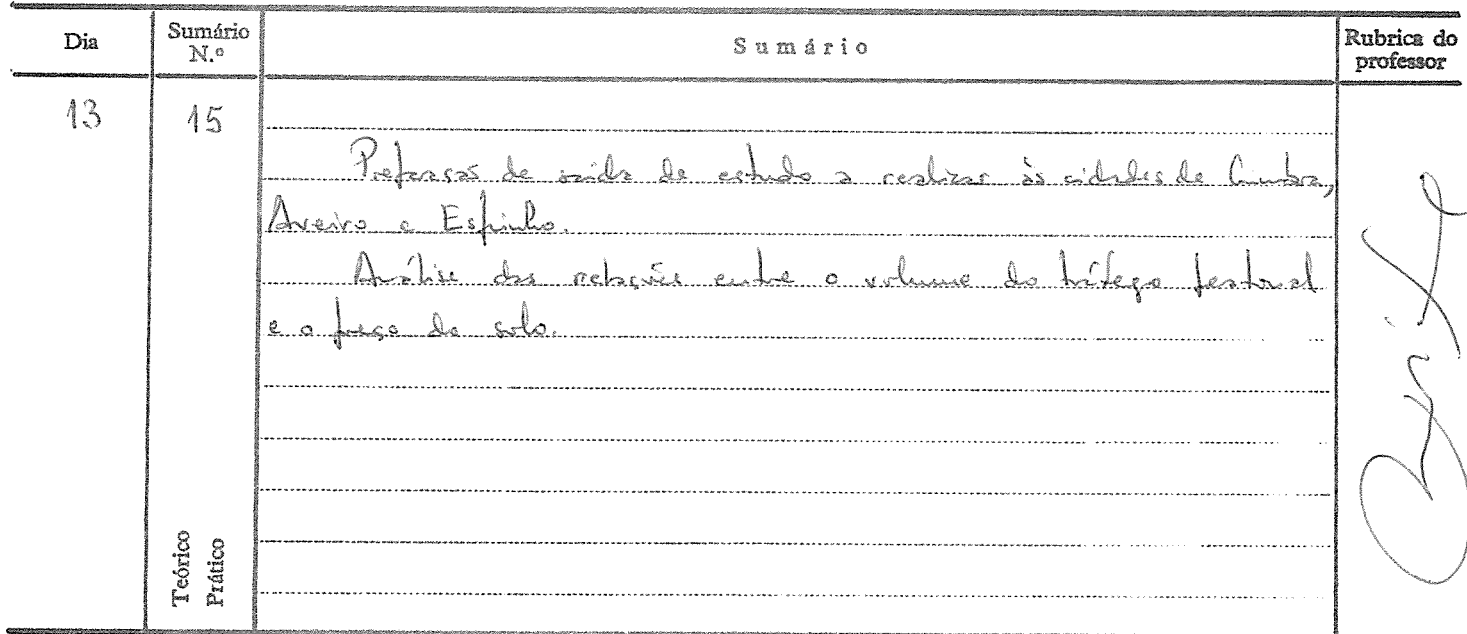 Dia
Sumário N.º
Sumário
Rubrica do professor
13
15
Preparação de saída de estudo a realizar às cidades de Coimbra,
Aveiro e Espinho.
Análise das relações entre o volume do tráfego pedonal
e o preço do solo.
Teórico
Prático